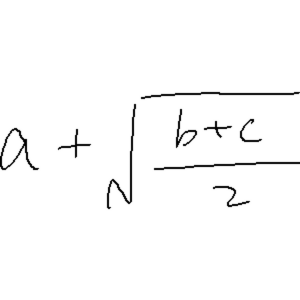 a + √((b+c)/2)